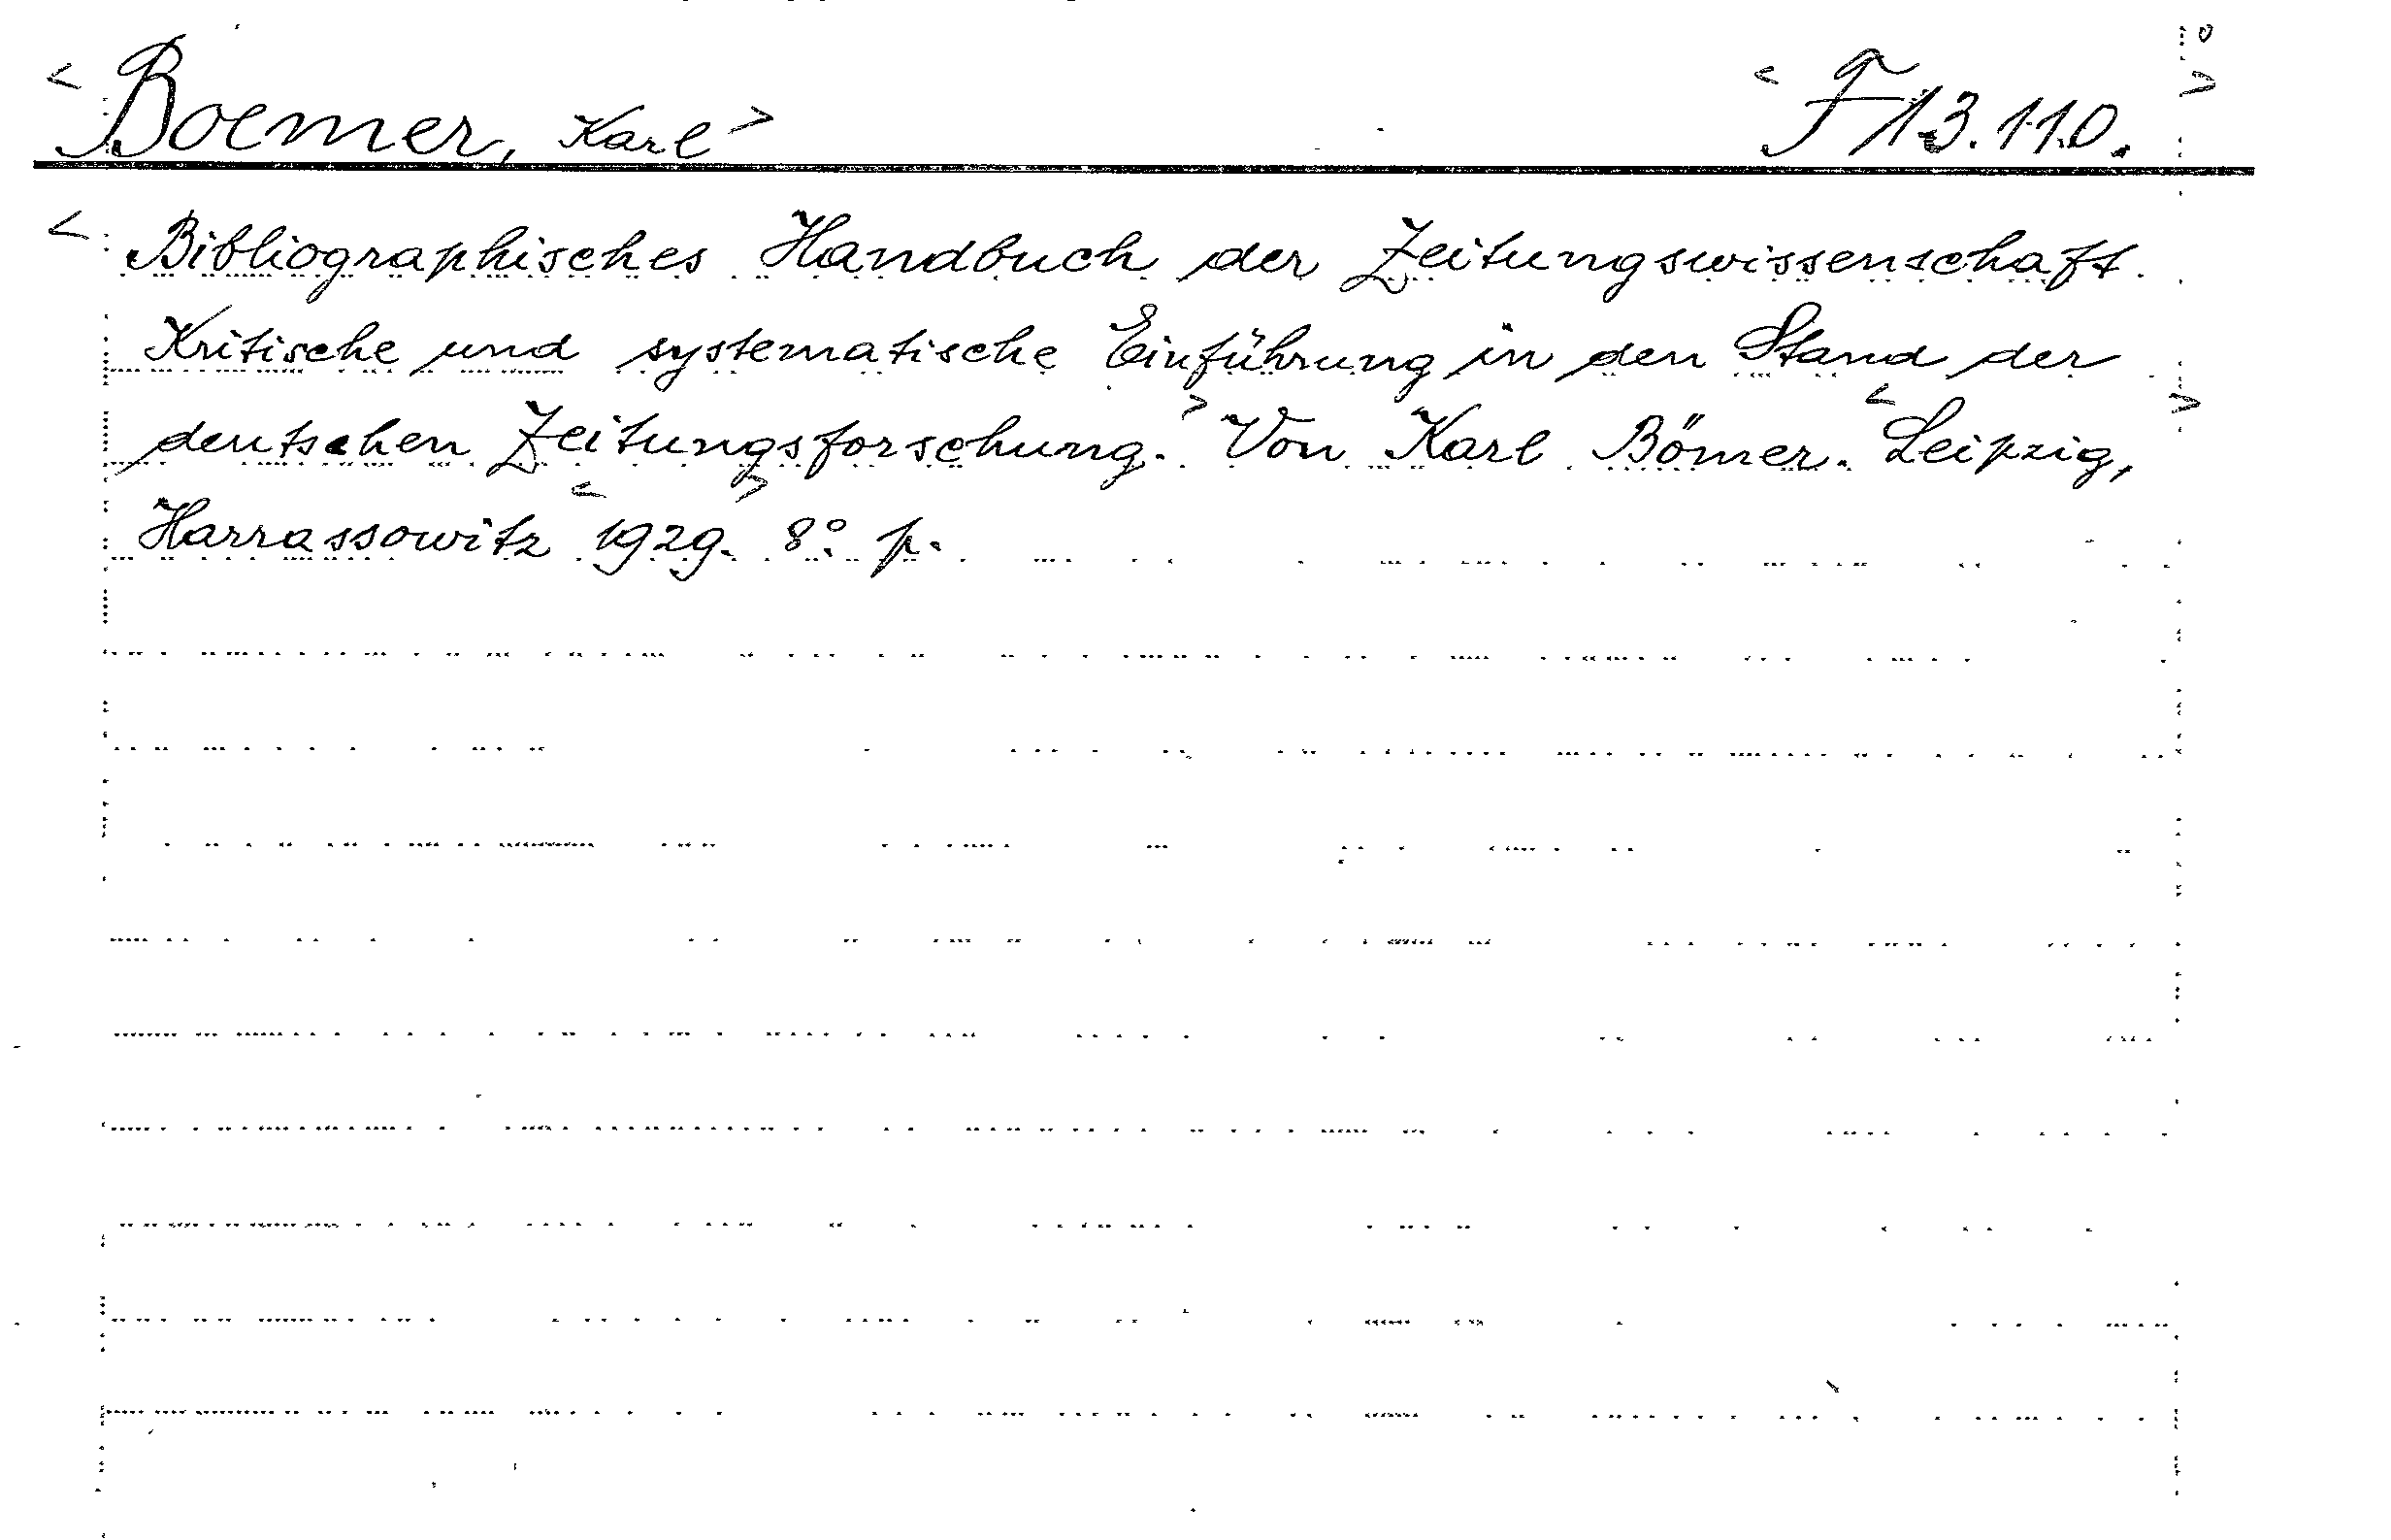 < Boemer, Karl > < F 13.110. >
< Bibliographisches Handbuch der Zeitungswissenschaft.
Kritische und systematische Einführung in den Stand der
deutschen Zeitungsforschung. > Von Karl Bömer. < Leipzig, >
Harrassowitz < 1929. > 8°. p.